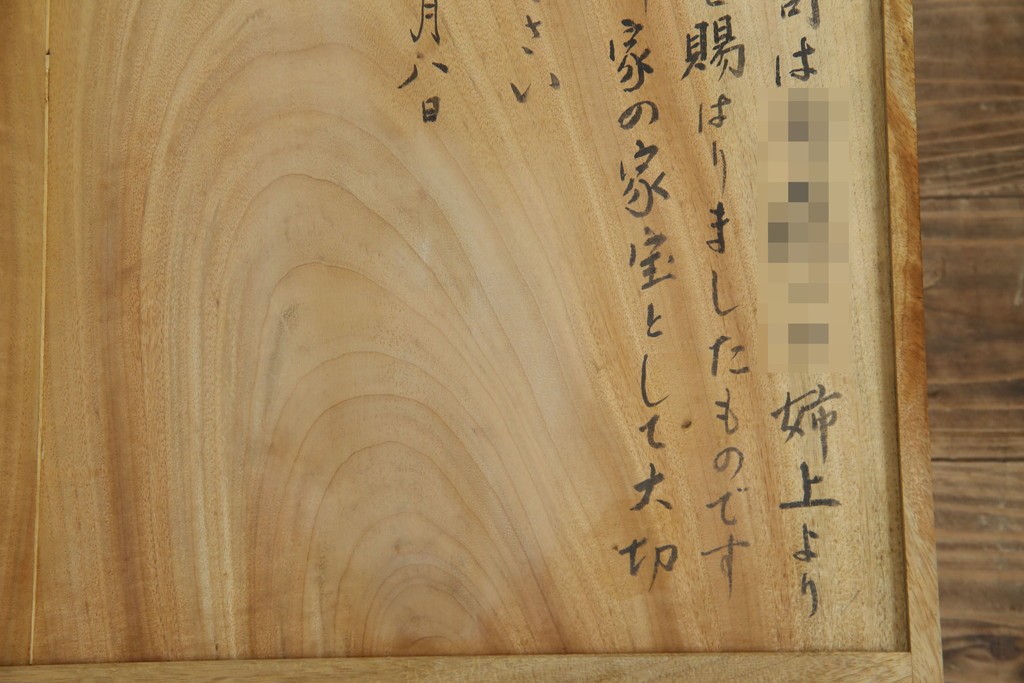 は 姉上より
賜はりましたものです
家の家宝として大切
さい
月八日